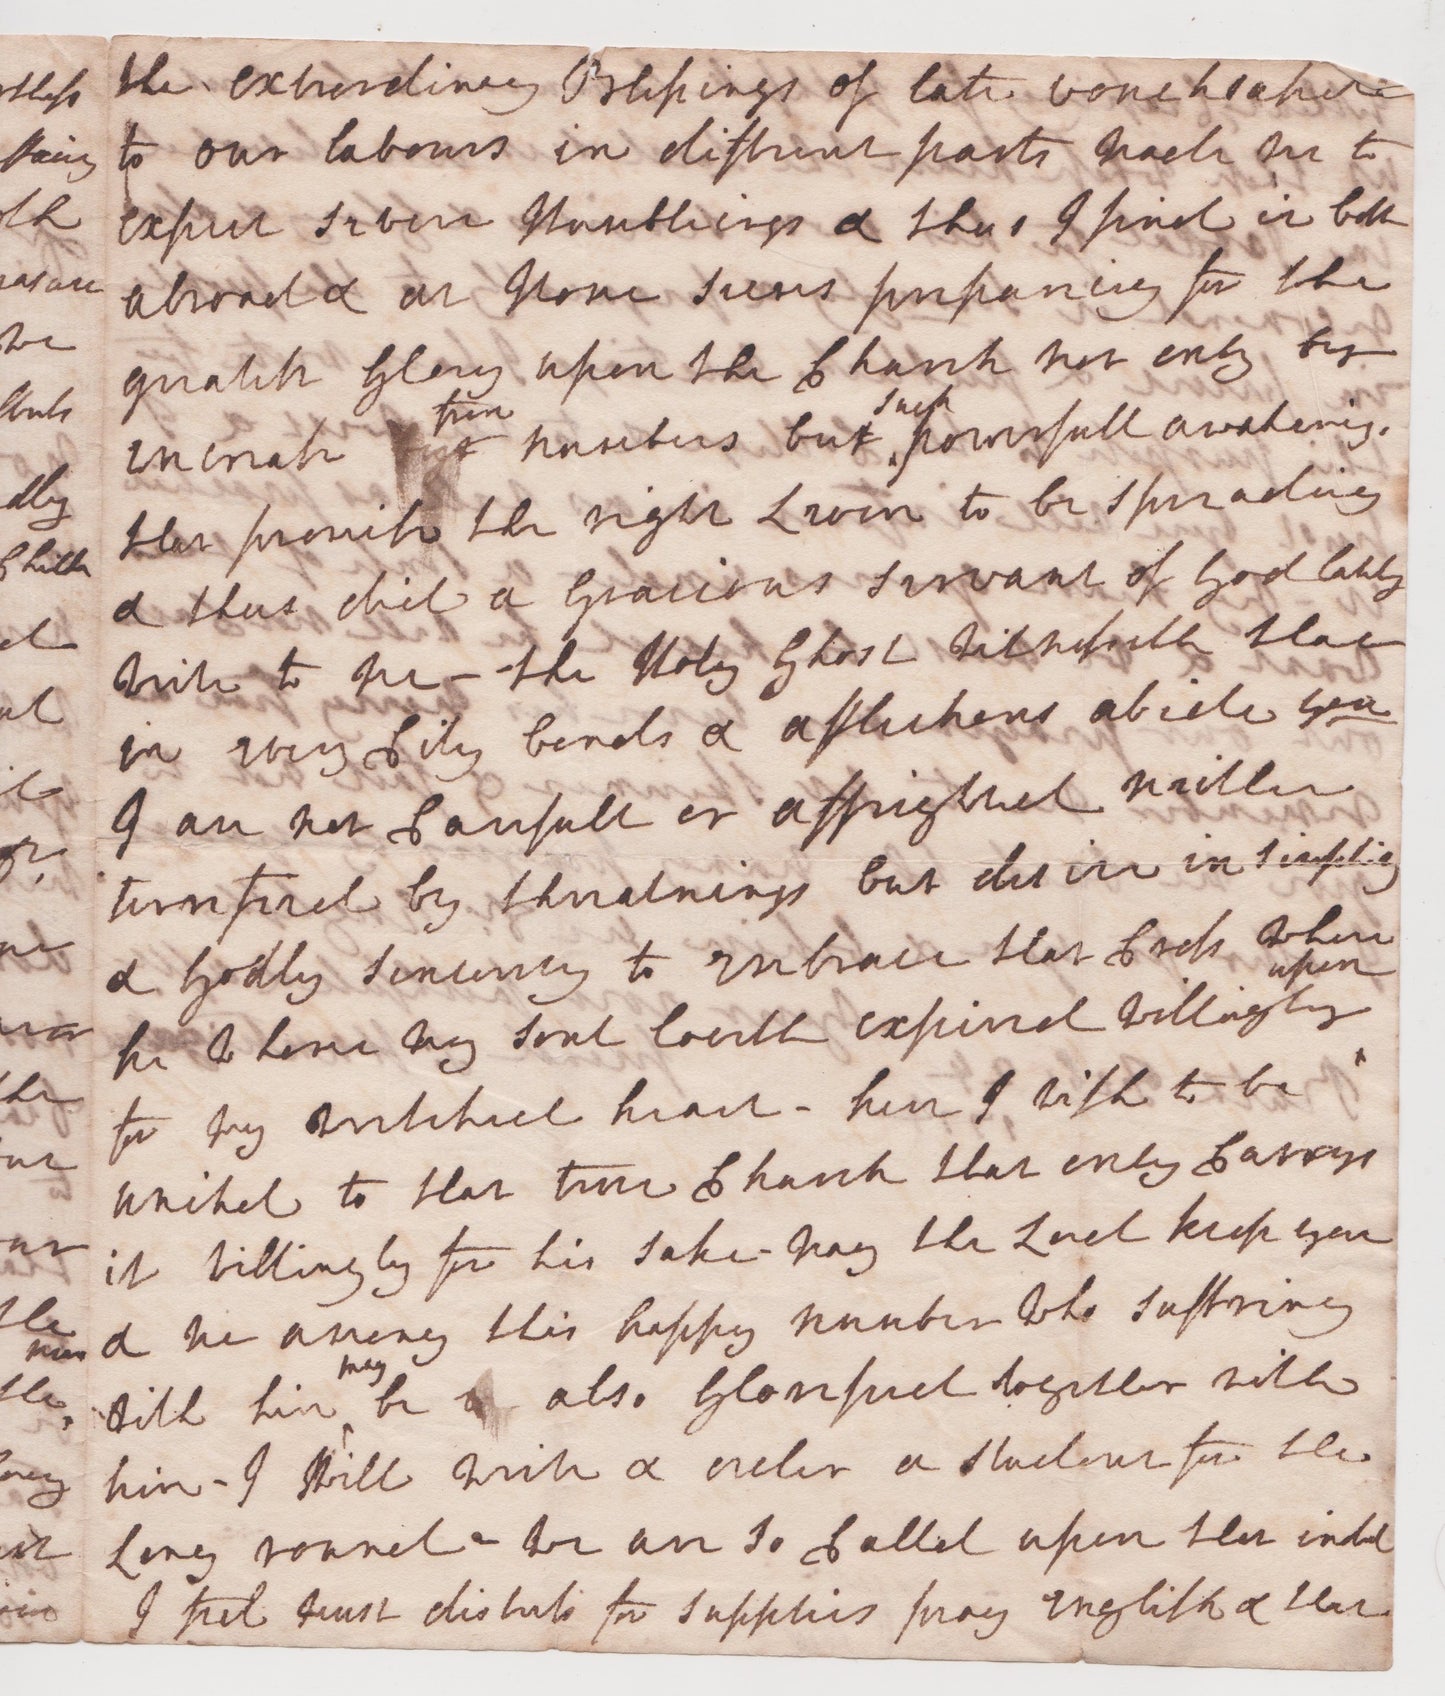 the extrordinary Blessings of late vouchsafed
to our labours in different parts made me to
expect severe Humblings & thus I find it both
abroad & at Home seems prepairing for the
greatest Glory upon the Church not only by
increase true numbers but such powerfull awakenings
that promise the right Leven to be spreading
& thus did a Gracious servant of God lately
write to me - the Holy Ghost witnesseth that
in every City bonds & afflictions abide you
I am not Carefull or affrighted neither
terrefied by threatnings but desire in simplicity
& Godly sincerity to embrace that Cross where
upon
he whome my soul loveth expired willingly
for my wretched heart - here I wish to be
united to that true Church that only Carrys
it willingly for his sake - may the Lord keep you
& me among this happy number who suffering
with him may be also Glorified together with
him - I Will write & order a student for the
Long round - we are so Called upon that indeed
I feel most distrest for supplies pray english & that